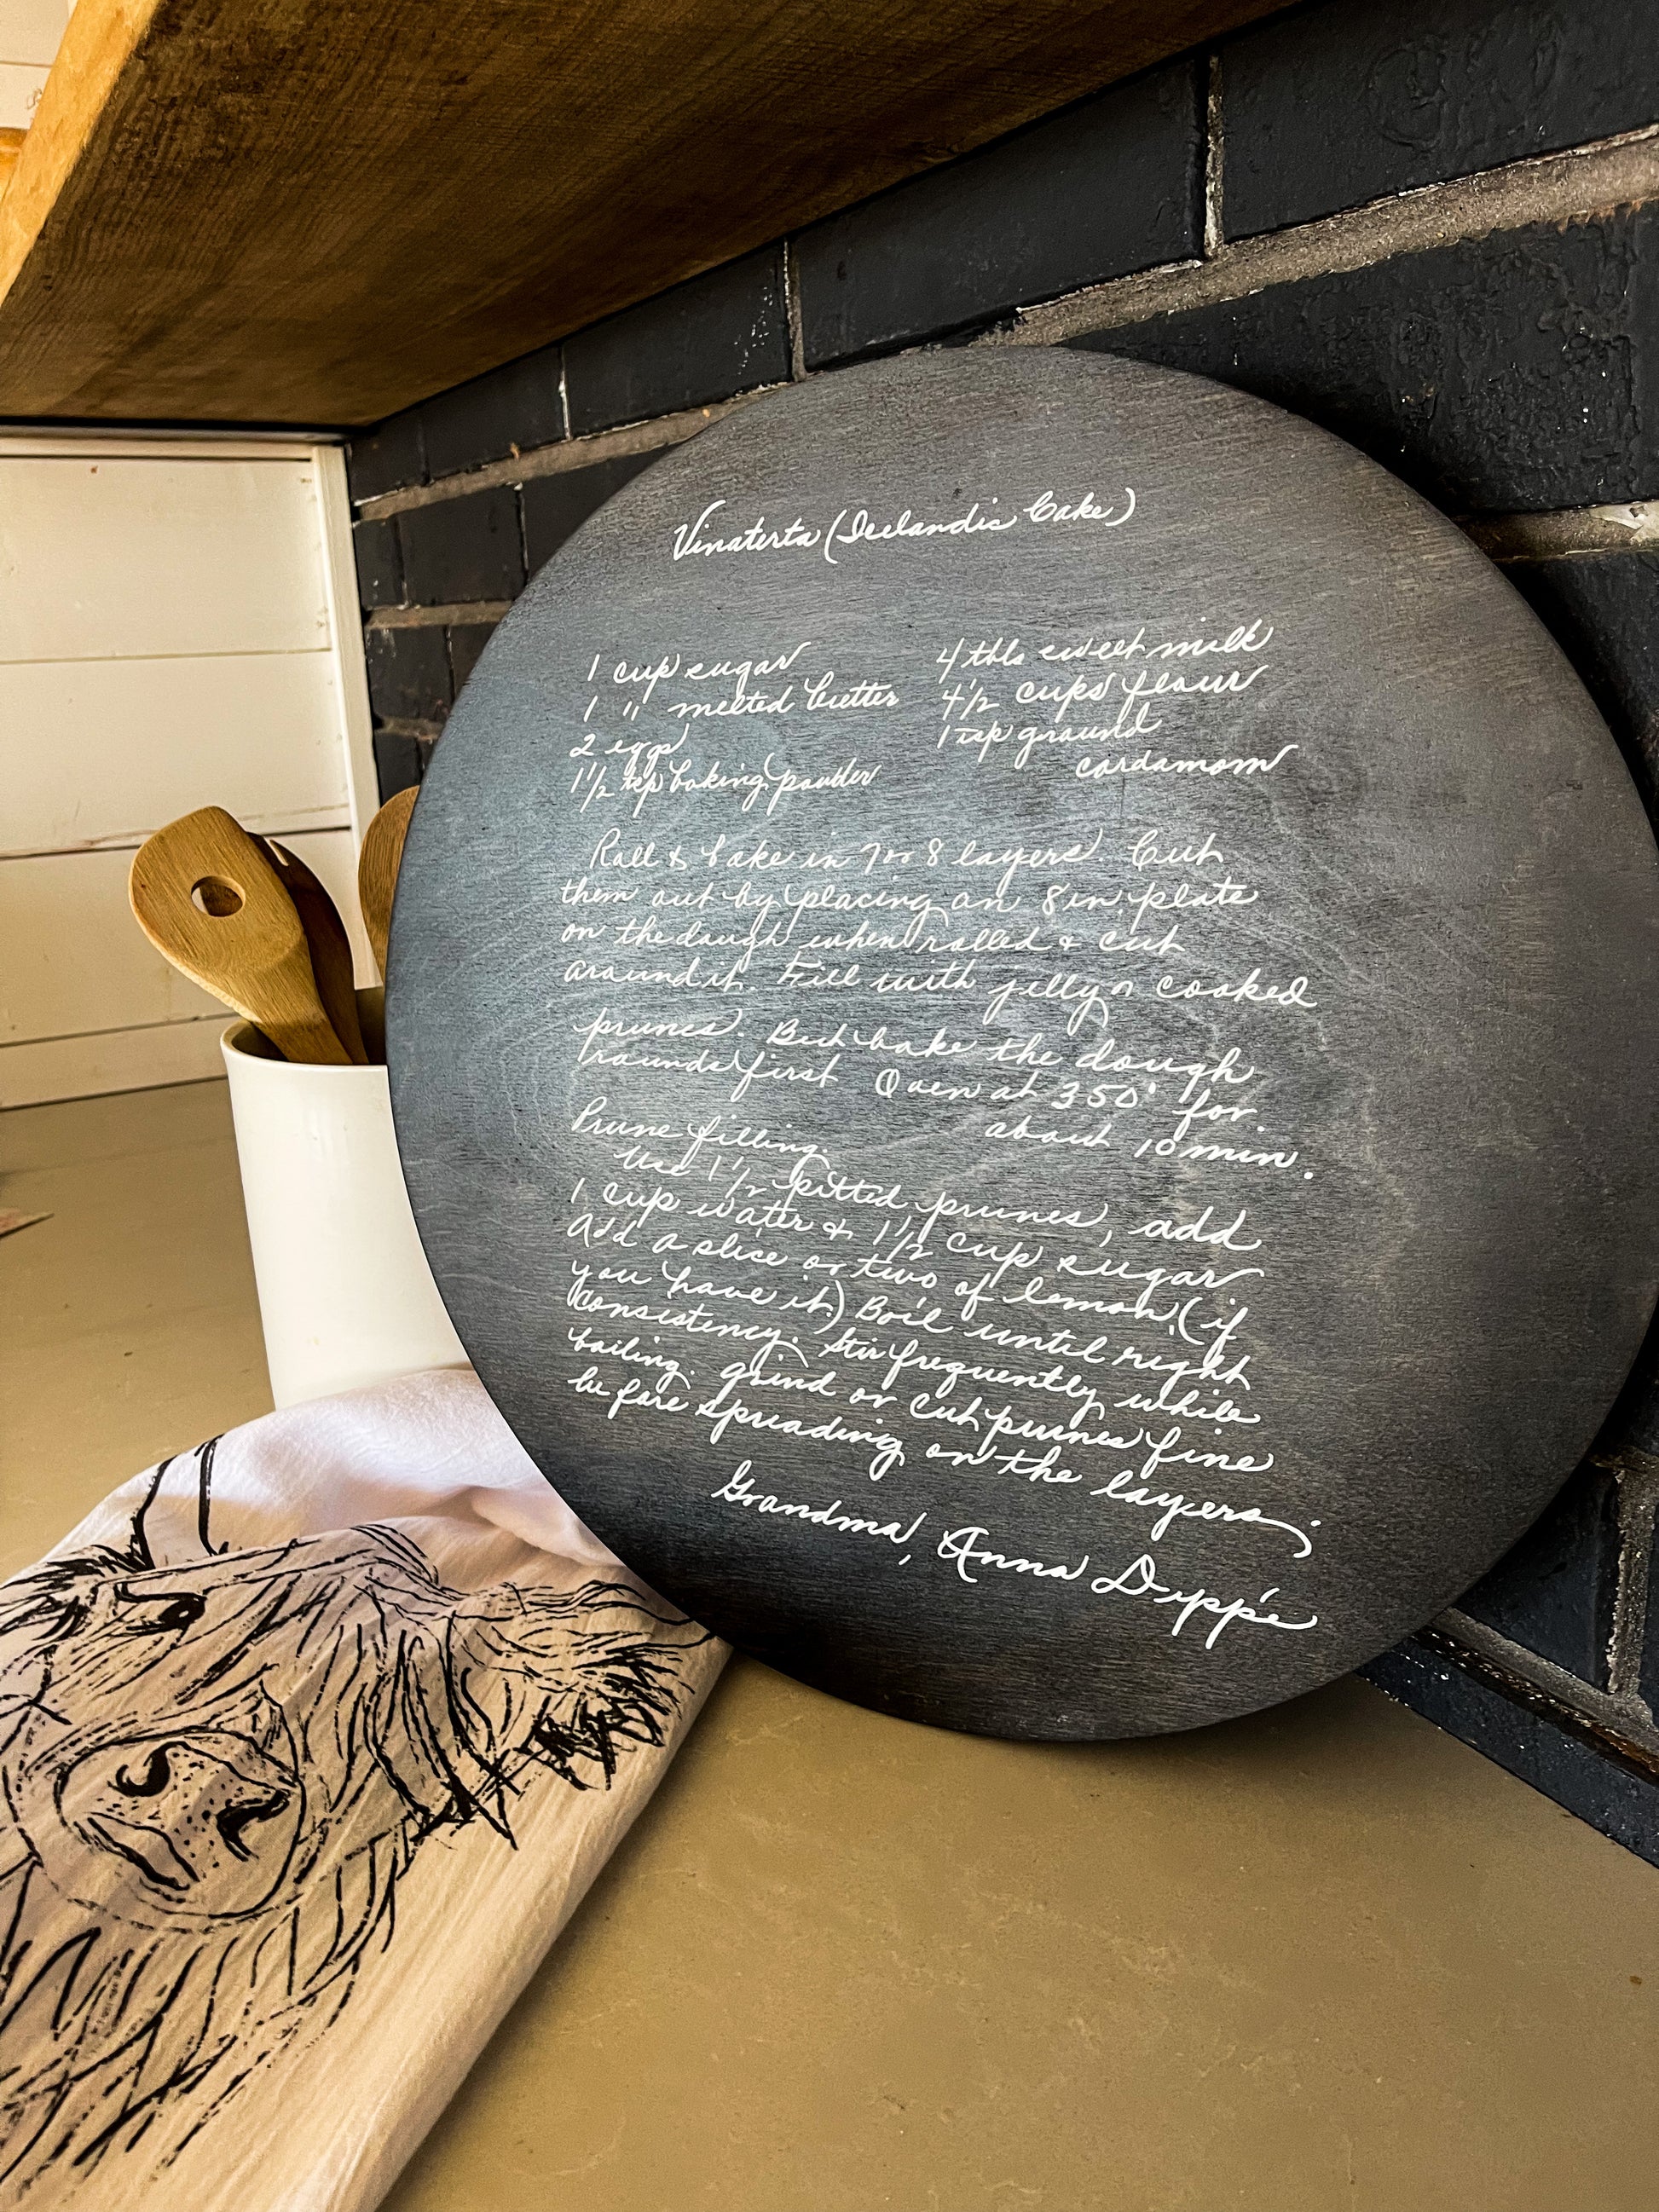 Vinaterta (Icelandic Cake)
1 cup sugar
1 " melted butter
2 eggs
1 1/2 tsp baking powder
4 tbls sweet milk
4 1/2 cups flour
1 tsp ground
cardamom
Roll & bake in 7 or 8 layers. Cut
them out by placing an 8 in. plate
on the dough when rolled & cut
around it. Fill with jelly or cooked
prunes. But bake the dough
rounds first Oven at 350° for
about 10 min.
Prune filling.
Use 1 1/2 pitted prunes, add
1 cup water & 1 1/2 cup sugar
Add a slice or two of lemon (if
you have it.) Boil until right
consistency. Stir frequently while
boiling. Grind or cut prunes fine
before spreading on the layers.
Grandma, Anna Dyppe